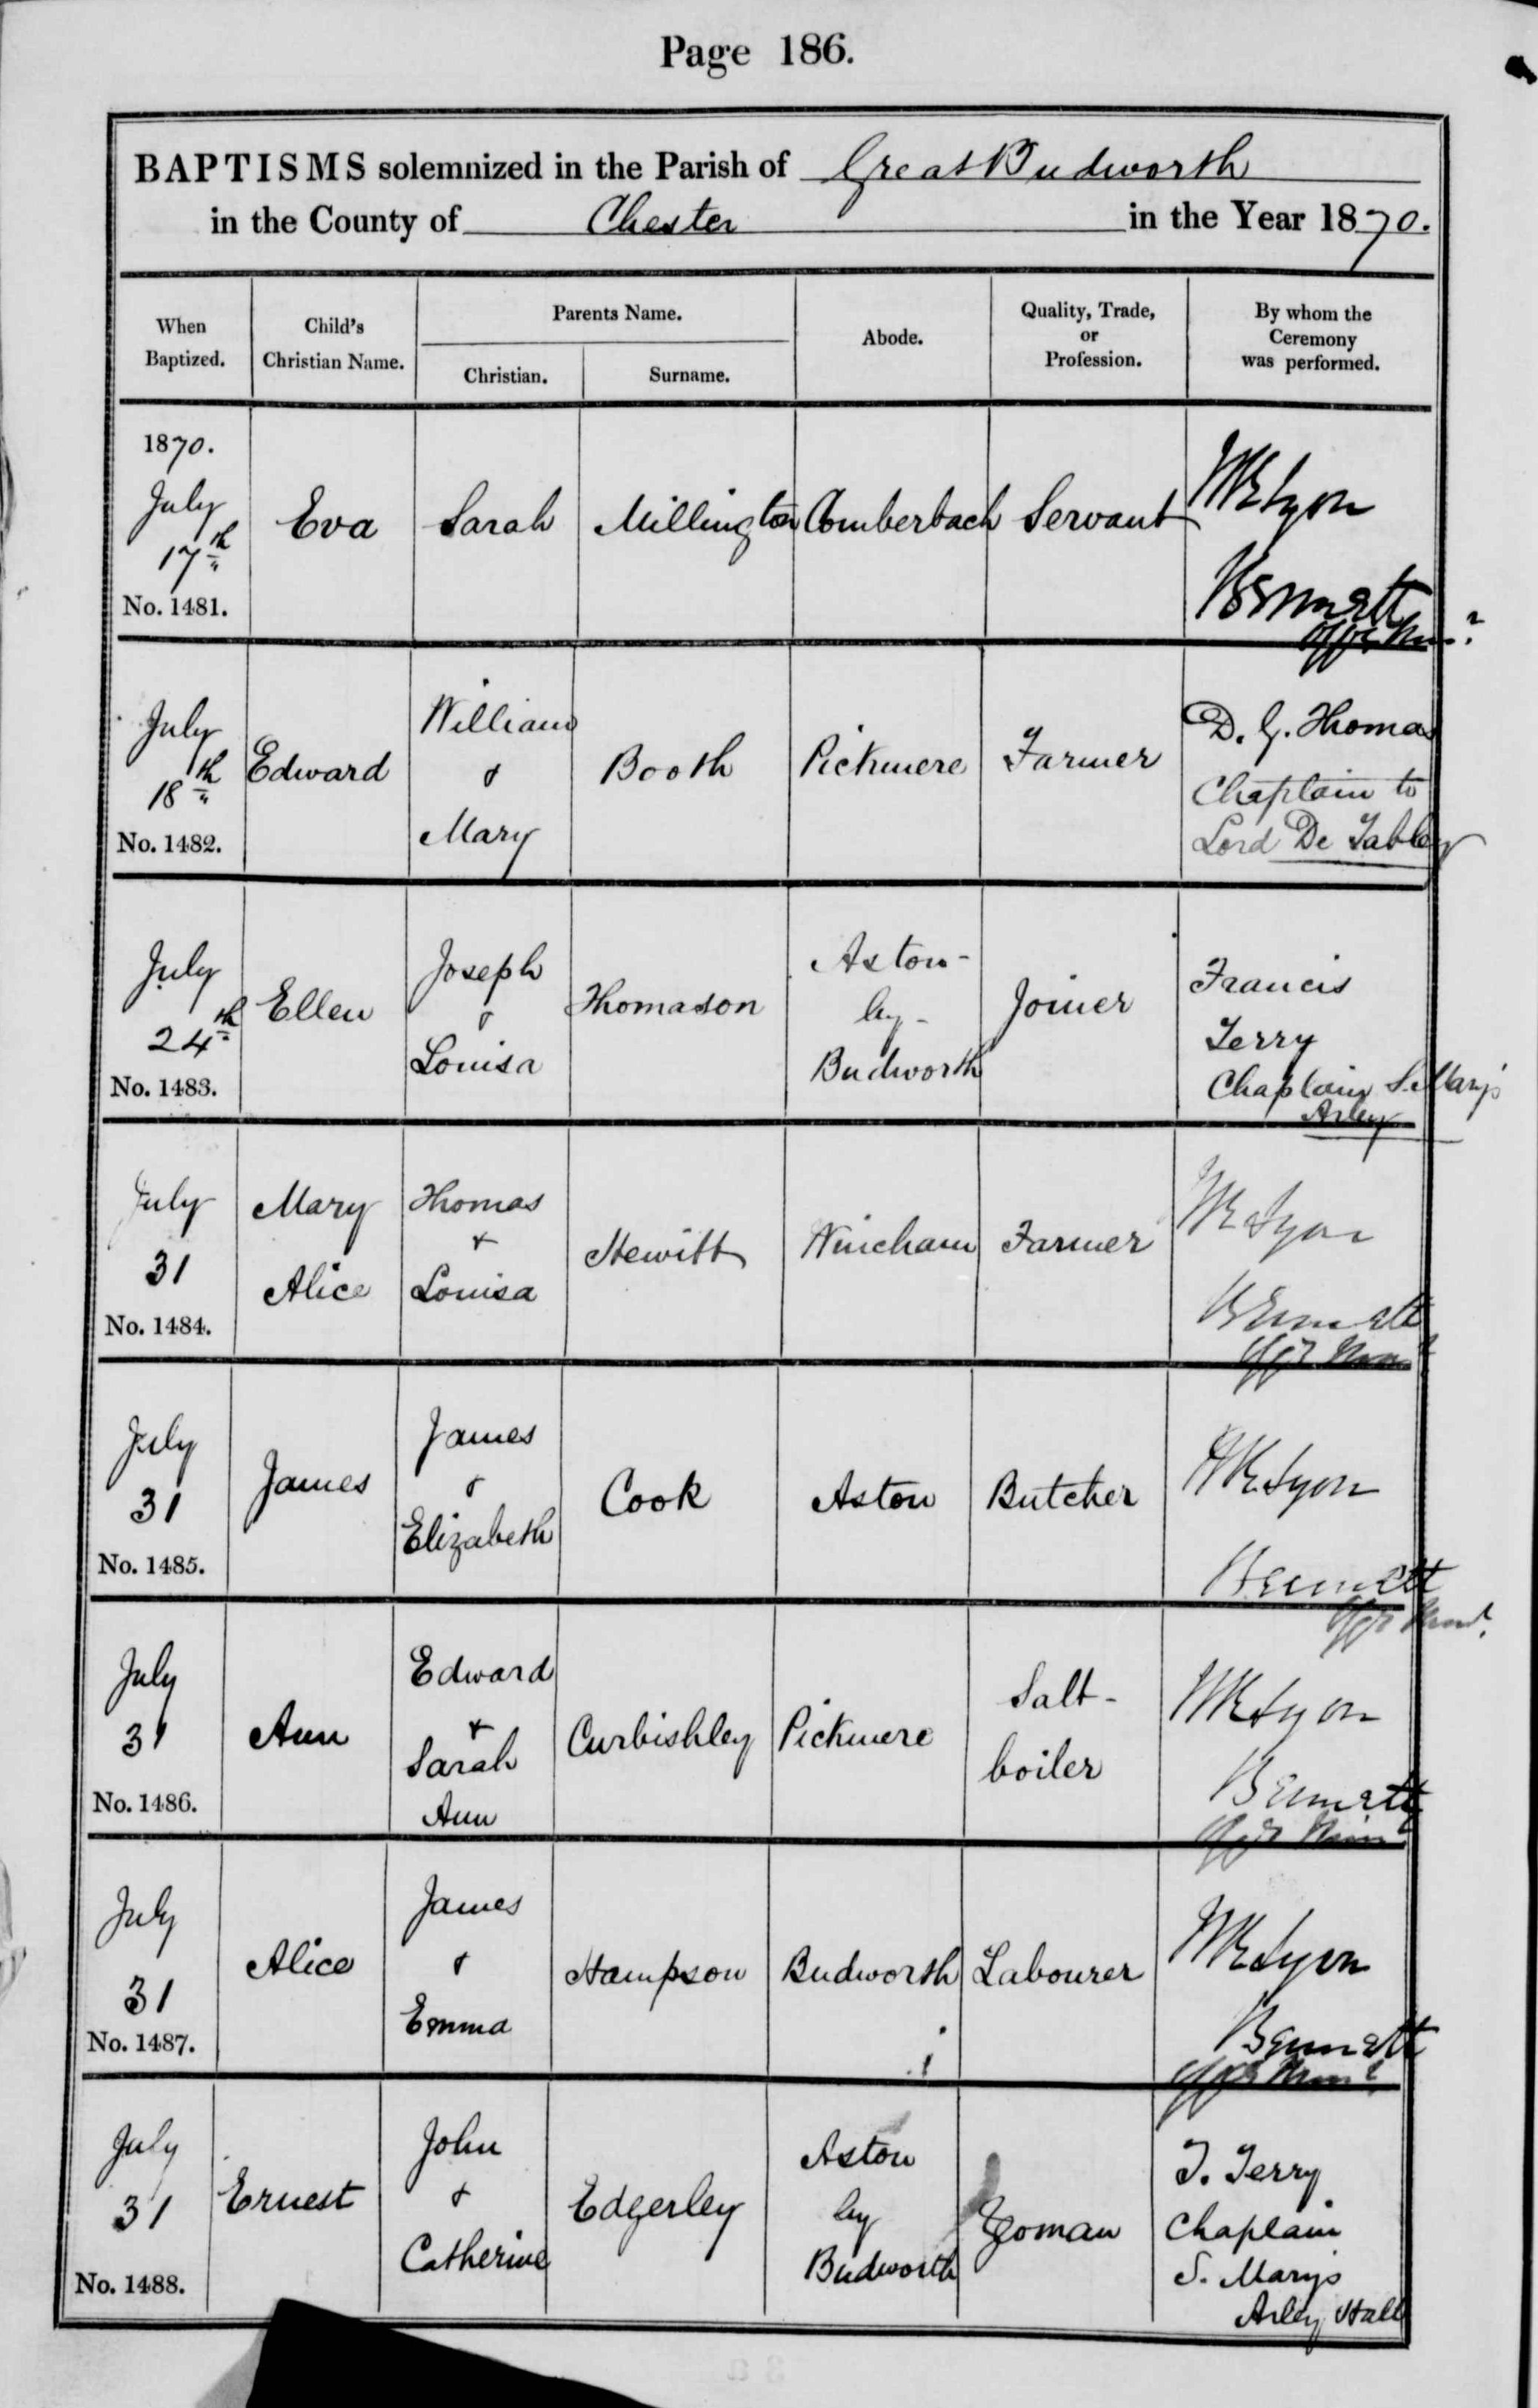 Page 186.
BAPTISMS solemnized in the Parish of Great Budworth
in the County of Chester in the Year 1870.
When Baptized.
Child's Christian Name.
Parents Name.
Christian.
Surname.
Abode.
Quality, Trade, or Profession.
By whom the Ceremony was performed.
1870.
July
17th
No. 1481.
Eva
Sarah
Millington
Comberbach
Servant
Lyon
Bennett
July
18th
No. 1482.
Edward
William
&
Mary
Booth
Pickmere
Farmer
D. G. Thomas
Chaplain to
Lord De Tabley
July
24th
No. 1483.
Ellen
Joseph
&
Louisa
Thomason
Aston-
by-
Budworth
Joiner
Francis
Terry
Chaplain S. Mary's
Arley
July
31
No. 1484.
Mary
Alice
Thomas
+
Louisa
Hewitt
Wincham
Farmer
Lyon
Bennett
July
31
No. 1485.
James
James
&
Elizabeth
Cook
Aston
Butcher
Lyon
Bennett
July
31
No. 1486.
Ann
Edward
+
Sarah
Ann
Curbishley
Pickmere
Salt-
boiler
Lyon
Bennett
July
31
No. 1487.
Alice
James
&
Emma
Hampson
Budworth
Labourer
Lyon
Bennett
July
31
No. 1488.
Ernest
John
&
Catherine
Edgerley
Aston
by
Budworth
Yeoman
F. Terry
Chaplain
S. Mary's
Arley Hall